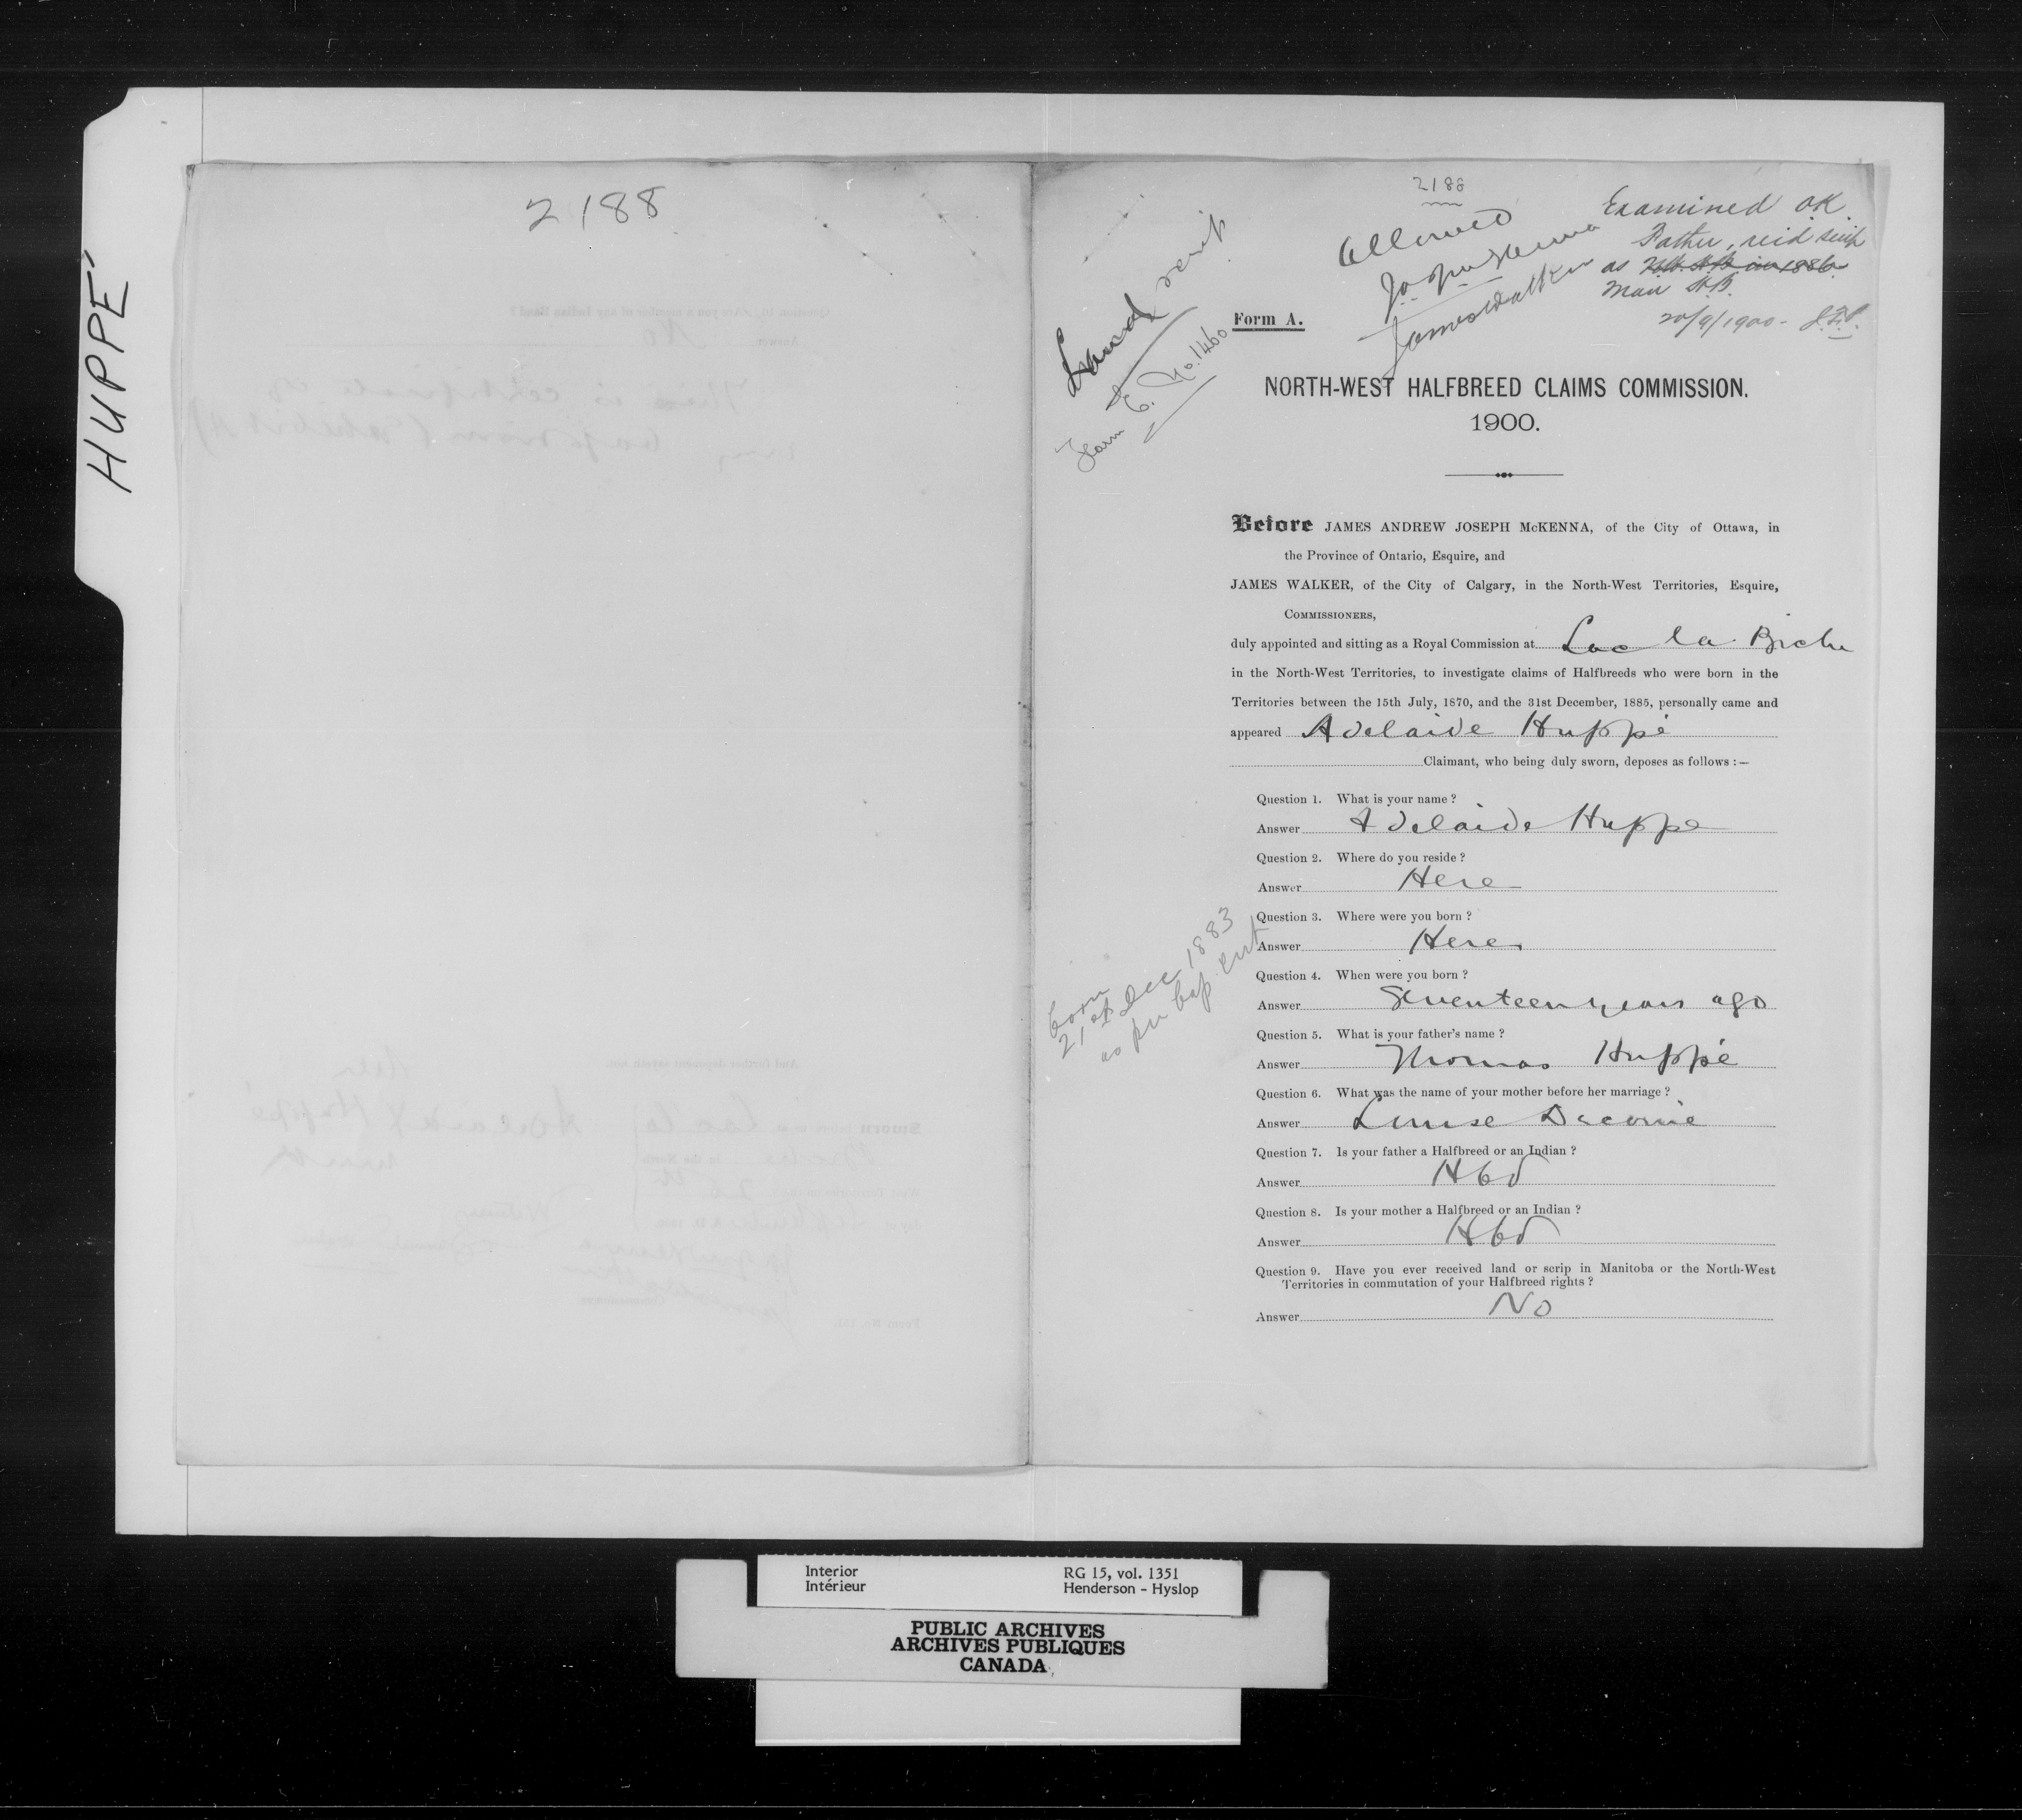 HUPPÉ
2188
2188
Allowed
Jas Walker
Examined O.K.
Father, recd scrip
as N.W. H.B. in 1886
Man H.B.
20/9/1900 -
Land scrip
Form E. No. 1460
Form A.
NORTH-WEST HALFBREED CLAIMS COMMISSION.
1900.
Before JAMES ANDREW JOSEPH McKENNA, of the City of Ottawa, in
the Province of Ontario, Esquire, and
JAMES WALKER, of the City of Calgary, in the North-West Territories, Esquire,
COMMISSIONERS,
duly appointed and sitting as a Royal Commission at Lac la Biche
in the North-West Territories, to investigate claims of Halfbreeds who were born in the
Territories between the 15th July, 1870, and the 31st December, 1885, personally came and
appeared Adelaide Huppé
Claimant, who being duly sworn, deposes as follows :—
Question 1. What is your name ?
Answer Adelaide Huppe
Question 2. Where do you reside ?
Answer Here
Question 3. Where were you born ?
Answer Here
born
21st Dec 1883
as per bap. cert
Question 4. When were you born ?
Answer Seventeen years ago
Question 5. What is your father's name ?
Answer Thomas Huppé
Question 6. What was the name of your mother before her marriage ?
Answer Louise
Question 7. Is your father a Halfbreed or an Indian ?
Answer Hbd
Question 8. Is your mother a Halfbreed or an Indian ?
Answer Hbd
Question 9. Have you ever received land or scrip in Manitoba or the North-West
Territories in commutation of your Halfbreed rights ?
Answer No
Interior
Intérieur
RG 15, vol. 1351
Henderson - Hyslop
PUBLIC ARCHIVES
ARCHIVES PUBLIQUES
CANADA